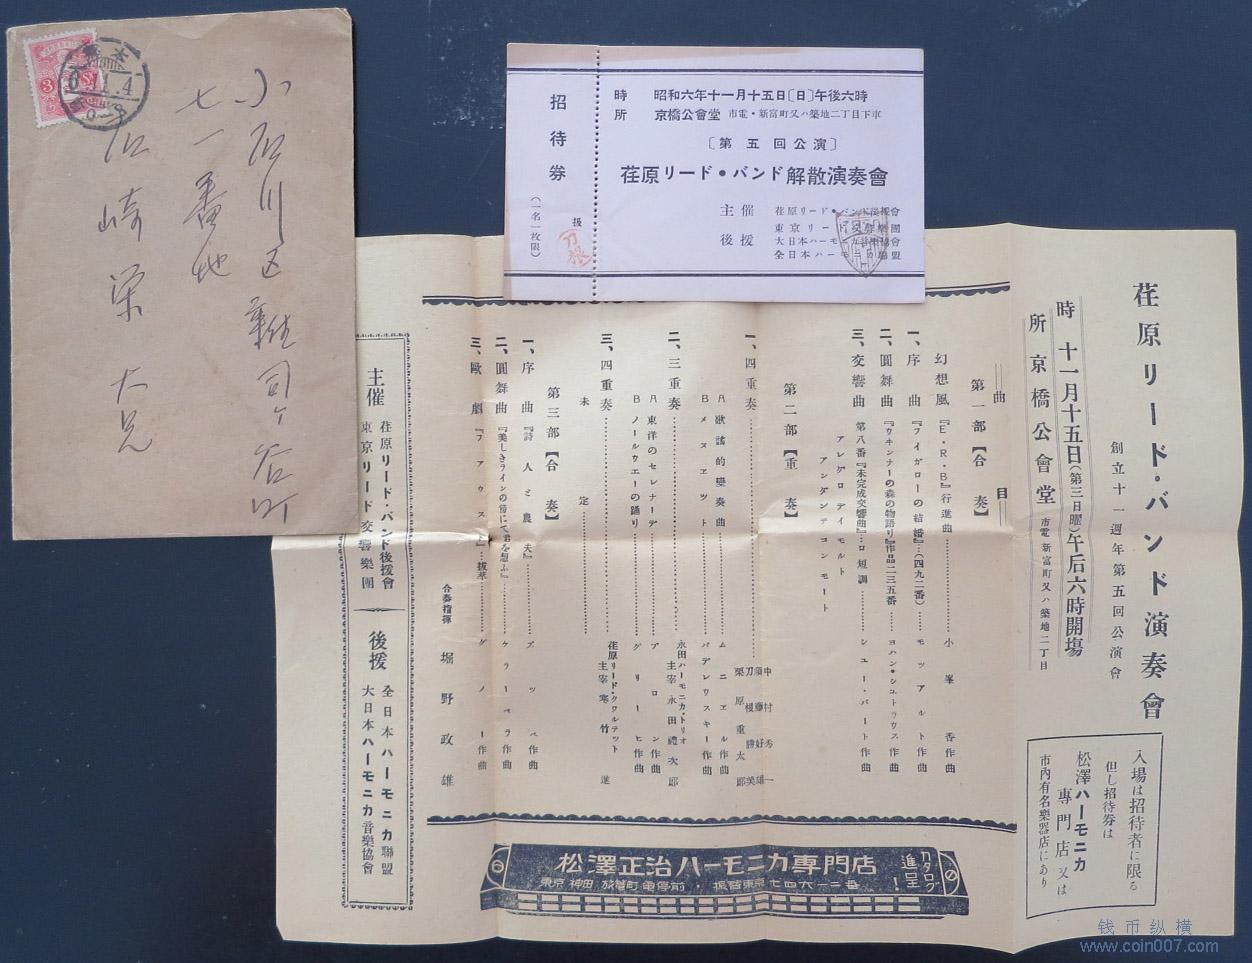 小石川区雜司ケ谷町
七一番地
石崎栄大兄
3
招待券
(一名一枚限)
扱
時 昭和六年十一月十五日〔日〕午後六時
所 京橋公會堂 市電・新富町又ハ築地二丁目下車
〔第五回公演〕
荏原リード・バンド解散演奏會
主催 荏原リード・バンド後援會
東京リード交響樂團
後援 大日本ハーモニカ音樂協會
全日本ハーモニカ聯盟
荏原リード・バンド演奏會
創立十一週年第五回公演會
時 十一月十五日(第三日曜)午后六時開場
所 京橋公會堂 市電新富町又ハ築地二丁目
入場は招待者に限る
但し招待券は
松澤ハーモニカ
專門店又は
市内有名樂器店にあり
曲目
第一部【合奏】
幻想風『E・R・B』行進曲 小峯 香作曲
一、序曲『フイガローの結婚』(四九二番) モツアルト作曲
二、圓舞曲『ウヰンナーの森の物語り』作品三二五番 ヨハン・シユトラウス作曲
三、交響曲 第八番『未完成交響曲』ロ短調 シユーバート作曲
アレグロデイモルト
アンダンテコンモート
第二部【重奏】
一、四重奏
A 歌謠的變奏曲 ムニエル作曲
B メヌエツト パデレウスキー作曲
二、三重奏 永田ハーモニカ・トリオ
主宰 永田禮次郎
A 東洋のセレナーデ アロン作曲
B ノールウエーの踊り グリーヒ作曲
三、四重奏 荏原リード・クワルテツト
主宰 寒竹 進
未定
第三部【合奏】
一、序曲『詩人と農夫』 ズツペ作曲
二、圓舞曲『美しきラインの畔にて君を想ふ』 ケラーベラ作曲
三、歌劇『フアウスト』拔萃 グノー作曲
合奏指揮 堀野政雄
主催 荏原リード・バンド後援會
東京リード交響樂團
後援 全日本ハーモニカ聯盟
大日本ハーモニカ音樂協會
松澤正治ハーモニカ專門店
カタログ進呈!
钱币纵横
www.coin007.com